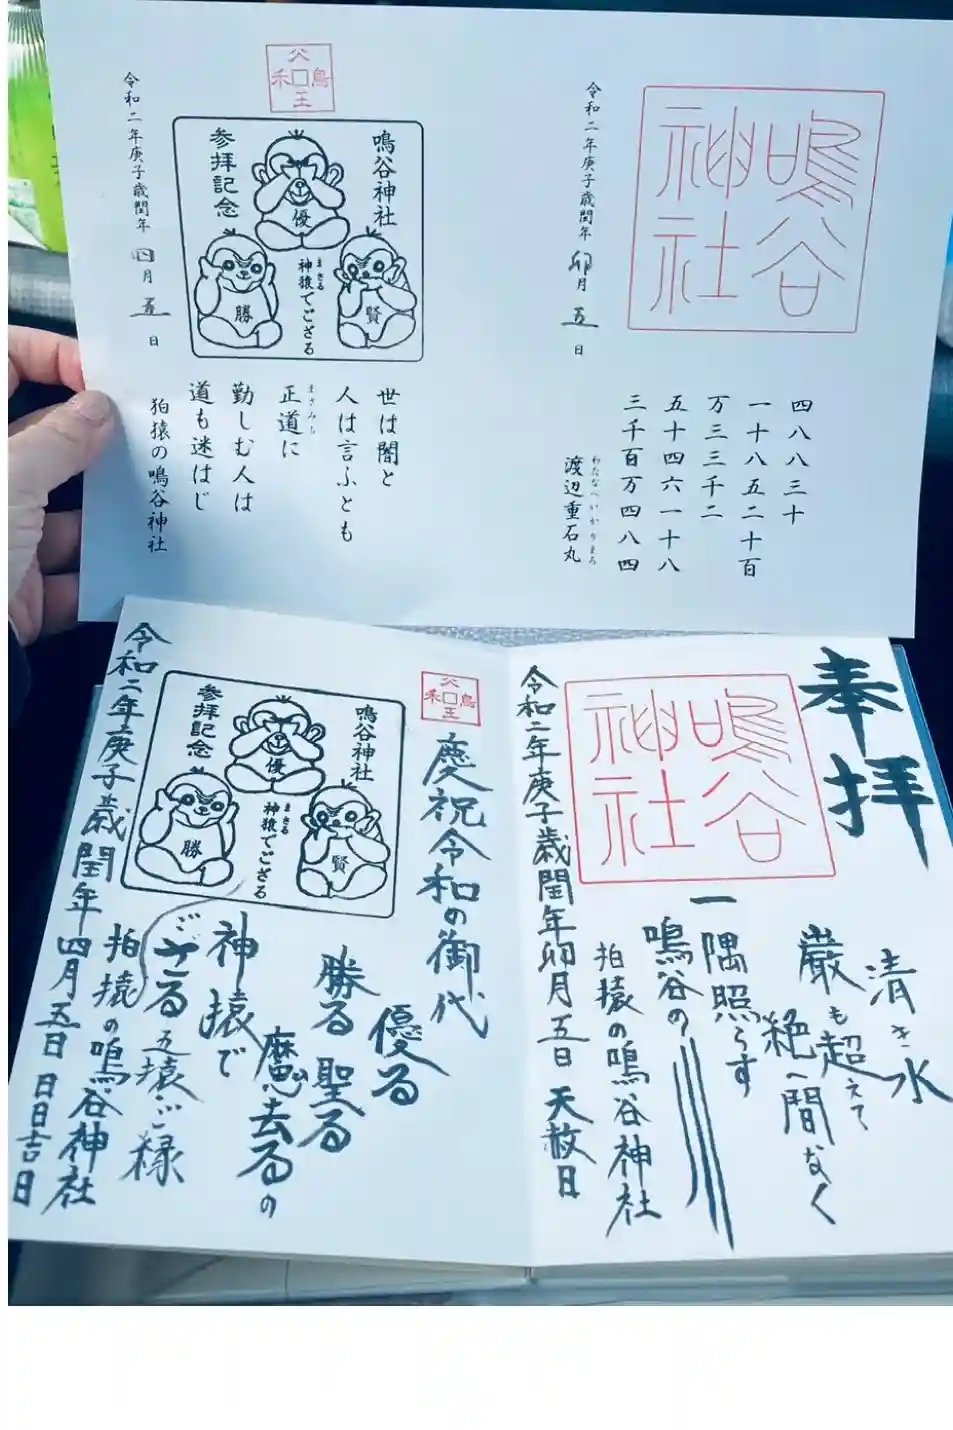 鳴谷神社
四八八三十
一十八五二十百
万三三千二
五十四六一十八
三千百万四八四
わたなへいかりまろ
渡辺重石丸
令和二年庚子歳閏年 卯月 五 日
鳴谷神社
優
賢
勝
まさる
神猿でござる
参拝記念
世は闇と
人は言ふとも
まさみち
正道に
勤しむ人は
道も迷はじ
狛猿の鳴谷神社
令和二年庚子歳閏年 四月 五 日
奉拝
清き水
巌も超えて
絶へ間なく
一隅照らす
鳴谷の
狛猿の鳴谷神社
鳴谷神社
令和二年庚子歳閏年卯月五日 天赦日
慶祝令和の御代
優る
勝る 聖る
魔去るの
神猿で
ござる
五猿ご縁
狛猿の鳴谷神社
鳴谷神社
優
賢
勝
まさる
神猿でござる
参拝記念
令和二年庚子歳閏年四月五日 日日吉日